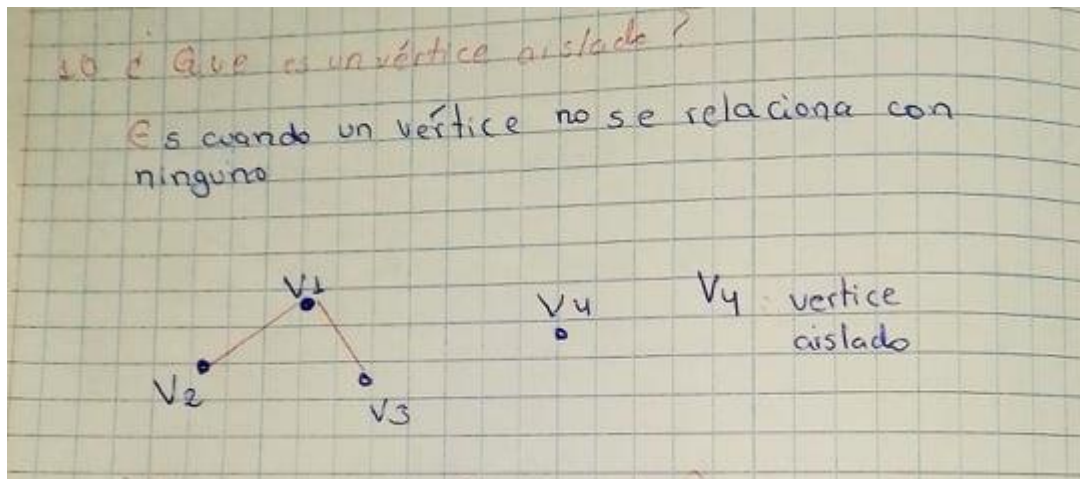 10 ¿ Que es un vértice aislado?
Es cuando un vértice no se relaciona con
ninguno
V1
V4
V4 vertice
aislado
V2
V3